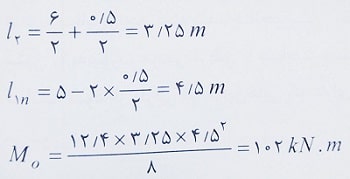 l₂ = ۶/۲ + ۰/۵/۲ = ۳/۲۵ m
l₁n = ۵ − ۲ × ۰/۵/۲ = ۴/۵ m
Mo = ۱۲/۴ × ۳/۲۵ × ۴/۵²/۸ = ۱۰۲ kN.m